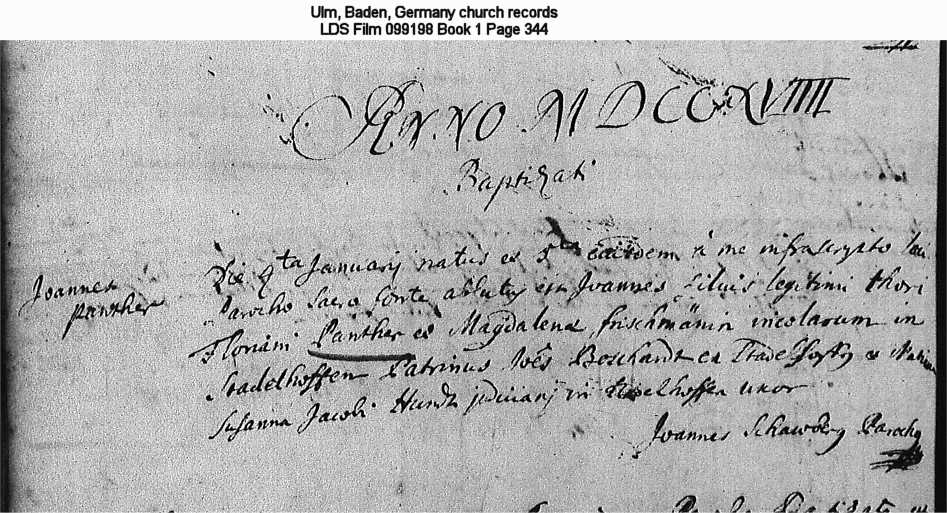 Ulm, Baden, Germany church records
LDS Film 099198 Book 1 Page 344
ANNO MDCCXVIIII
Baptizati
Joannes
Panther
Die 4ta Januarij natus et 5ta eiusdem à me infrascripto
Parocho Sacro fonte ablutus est Joannes filius legitimi thori
Floriani Panther et Magdalenæ frischmänin incolarum in
Stadelhoffen Patrinus Joēs Boschardt ex et
Susanna Jacobi Hundt in uxor
Joannes Parochus